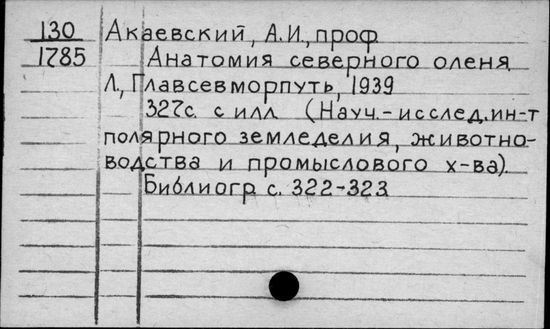 130 Акаевский, А.И., проф
1785 Анатомия северного оленя
Л., Главсевморпуть, 1939
327с. с илл (Науч.-исслед.ин-т
полярного земледелия, животно-
водства и промыслового х-ва).
Библиогр с. 322-323